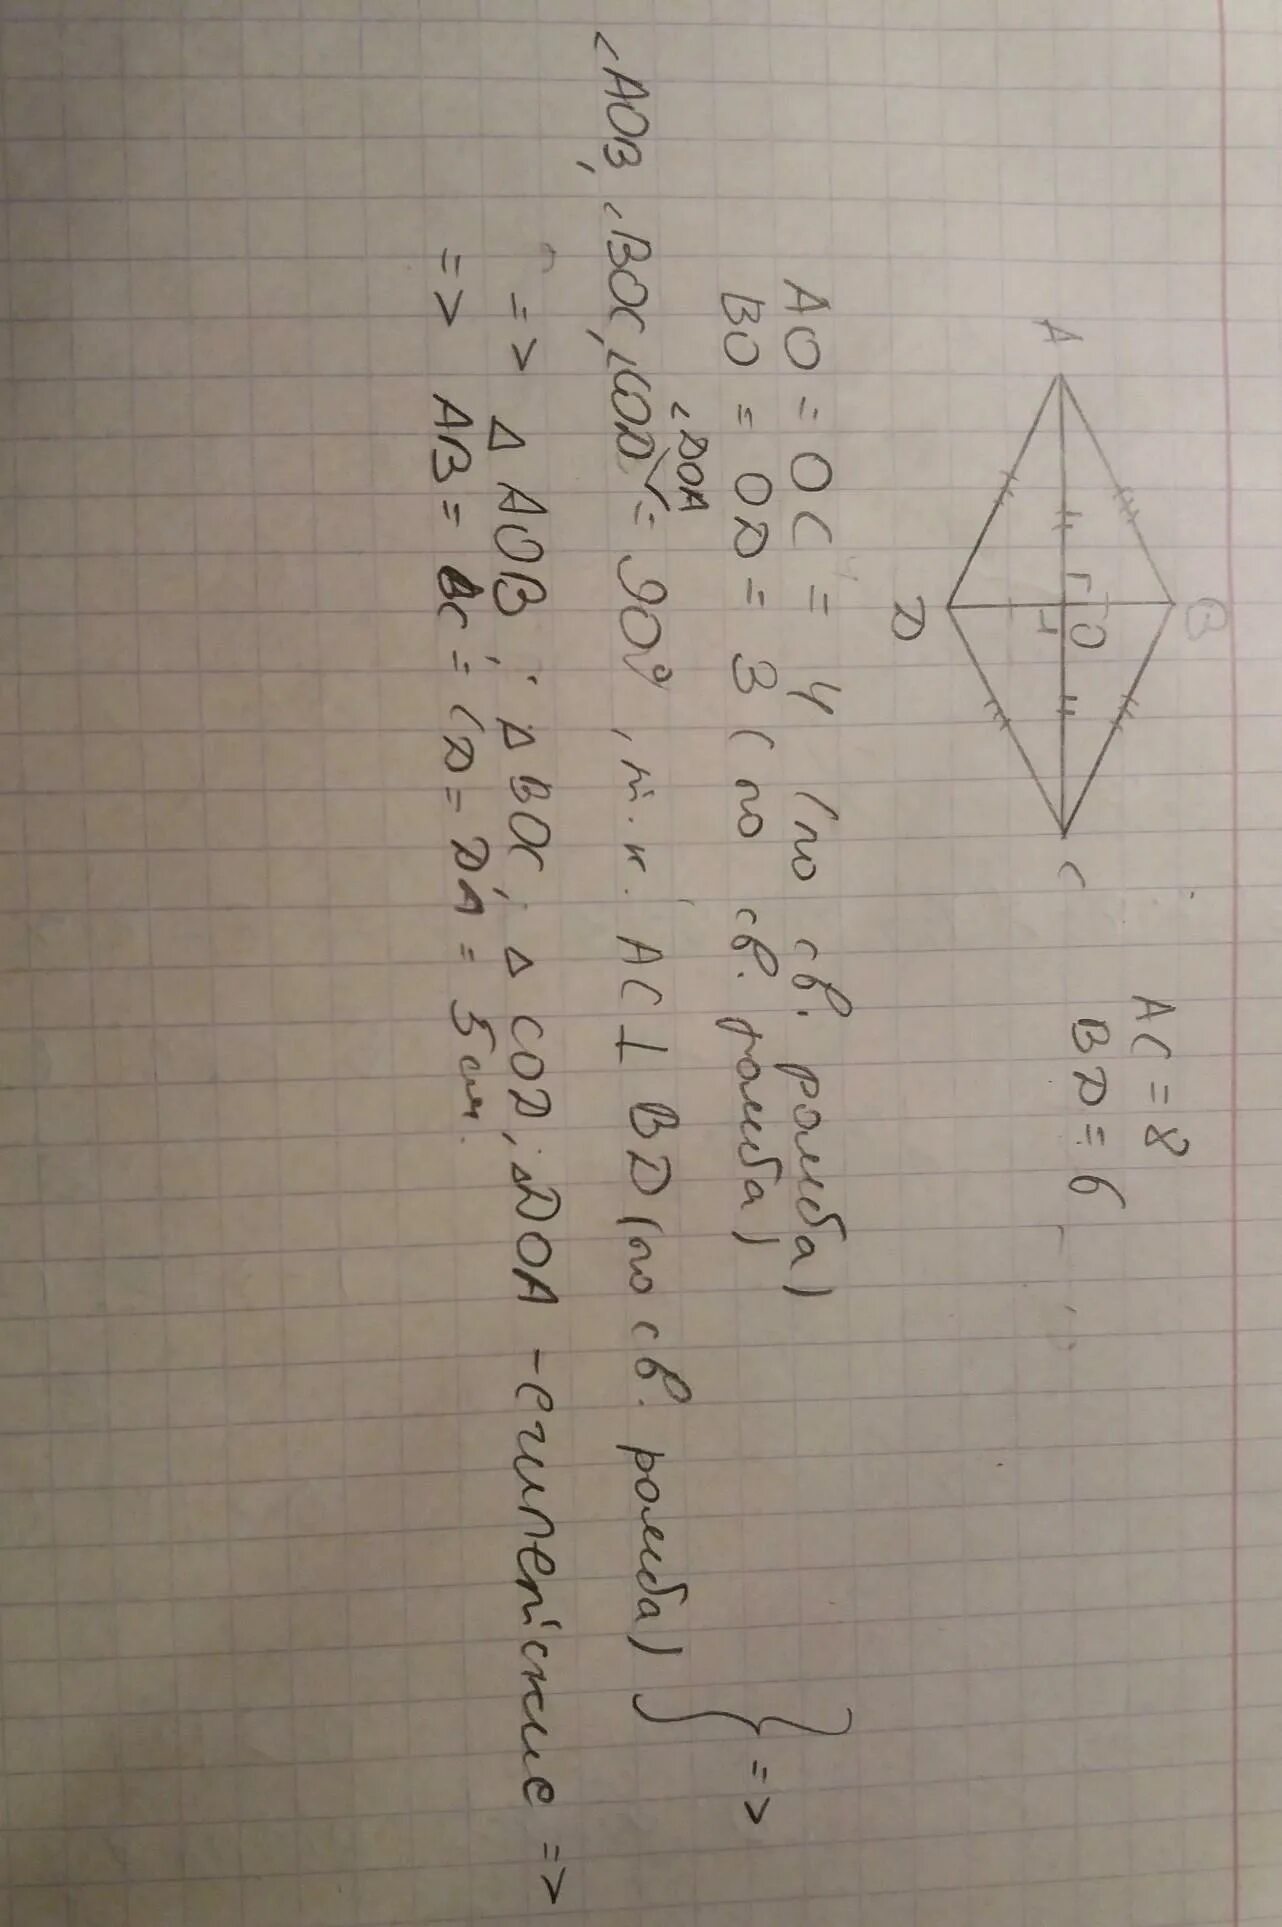 B
A
O
C
D
AC = 8
BD = 6
AO = OC = 4 (по св. ромба)
BO = OD = 3 (по св. ромба)
=>
∠DOA
∠AOB, ∠BOC, ∠COD = 90°, т.к. AC ⊥ BD (по св. ромба)
=> Δ AOB, Δ BOC, Δ COD, ΔDOA - египетские =>
=> AB = BC = CD = DA = 5 см.